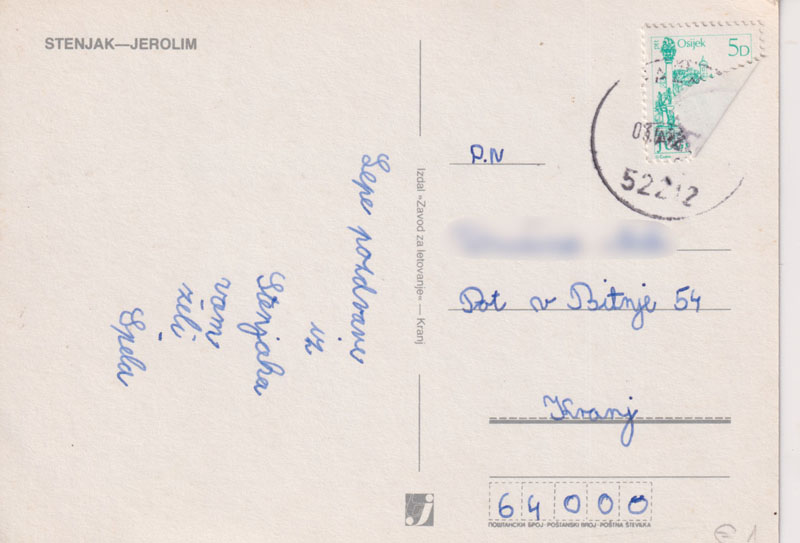 STENJAK—JEROLIM
Lepe pozdrave
iz
Stenjaka
vam
želi
Špela
Izdal »Zavod za letovanje« — Kranj
Osijek 5D
52212
P.N
Pot v Bitnje 54
Kranj
64000
ПОШТАНСКИ БРОЈ · POŠTANSKI BROJ · POŠTNA ŠTEVILKA